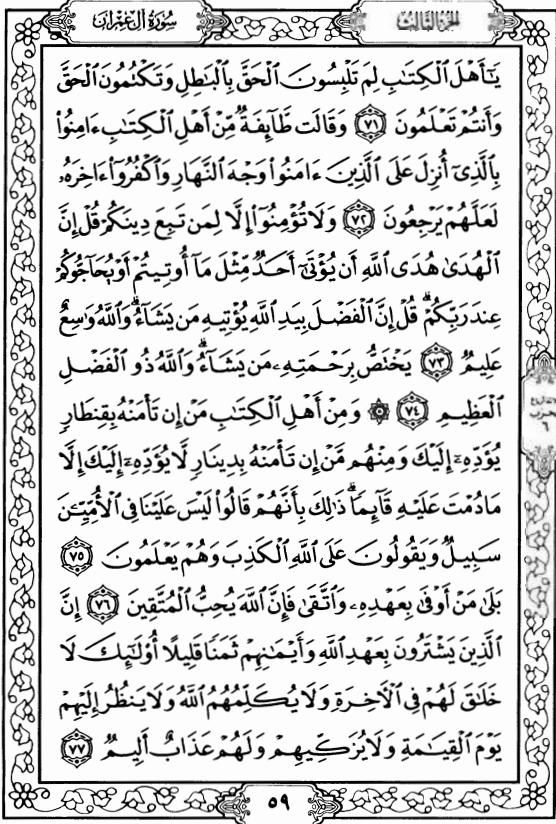 سُورَةُ آلِ عِمْرَانَ
الجُزْءُ الثَّالِثُ
يَٰٓأَهْلَ ٱلْكِتَٰبِ لِمَ تَلْبِسُونَ ٱلْحَقَّ بِٱلْبَٰطِلِ وَتَكْتُمُونَ ٱلْحَقَّ
وَأَنتُمْ تَعْلَمُونَ ٧١ وَقَالَت طَّآئِفَةٌ مِّنْ أَهْلِ ٱلْكِتَٰبِ ءَامِنُوا۟
بِٱلَّذِىٓ أُنزِلَ عَلَى ٱلَّذِينَ ءَامَنُوا۟ وَجْهَ ٱلنَّهَارِ وَٱكْفُرُوٓا۟ ءَاخِرَهُۥ
لَعَلَّهُمْ يَرْجِعُونَ ٧٢ وَلَا تُؤْمِنُوٓا۟ إِلَّا لِمَن تَبِعَ دِينَكُمْ قُلْ إِنَّ
ٱلْهُدَىٰ هُدَى ٱللَّهِ أَن يُؤْتَىٰٓ أَحَدٌ مِّثْلَ مَآ أُوتِيتُمْ أَوْ يُحَآجُّوكُمْ
عِندَ رَبِّكُمْ ۗ قُلْ إِنَّ ٱلْفَضْلَ بِيَدِ ٱللَّهِ يُؤْتِيهِ مَن يَشَآءُ ۗ وَٱللَّهُ وَٰسِعٌ
عَلِيمٌ ٧٣ يَخْتَصُّ بِرَحْمَتِهِۦ مَن يَشَآءُ ۗ وَٱللَّهُ ذُو ٱلْفَضْلِ
ٱلْعَظِيمِ ٧٤ ۞ وَمِنْ أَهْلِ ٱلْكِتَٰبِ مَنْ إِن تَأْمَنْهُ بِقِنطَارٍ
يُؤَدِّهِۦٓ إِلَيْكَ وَمِنْهُم مَّنْ إِن تَأْمَنْهُ بِدِينَارٍ لَّا يُؤَدِّهِۦٓ إِلَيْكَ إِلَّا
مَا دُمْتَ عَلَيْهِ قَآئِمًا ۗ ذَٰلِكَ بِأَنَّهُمْ قَالُوا۟ لَيْسَ عَلَيْنَا فِى ٱلْأُمِّيِّـۧنَ
سَبِيلٌ وَيَقُولُونَ عَلَى ٱللَّهِ ٱلْكَذِبَ وَهُمْ يَعْلَمُونَ ٧٥
بَلَىٰ مَنْ أَوْفَىٰ بِعَهْدِهِۦ وَٱتَّقَىٰ فَإِنَّ ٱللَّهَ يُحِبُّ ٱلْمُتَّقِينَ ٧٦ إِنَّ
ٱلَّذِينَ يَشْتَرُونَ بِعَهْدِ ٱللَّهِ وَأَيْمَٰنِهِمْ ثَمَنًا قَلِيلًا أُو۟لَٰٓئِكَ لَا
خَلَٰقَ لَهُمْ فِى ٱلْأَخِرَةِ وَلَا يُكَلِّمُهُمُ ٱللَّهُ وَلَا يَنظُرُ إِلَيْهِمْ
يَوْمَ ٱلْقِيَٰمَةِ وَلَا يُزَكِّيهِمْ وَلَهُمْ عَذَابٌ أَلِيمٌ ٧٧
٥٩